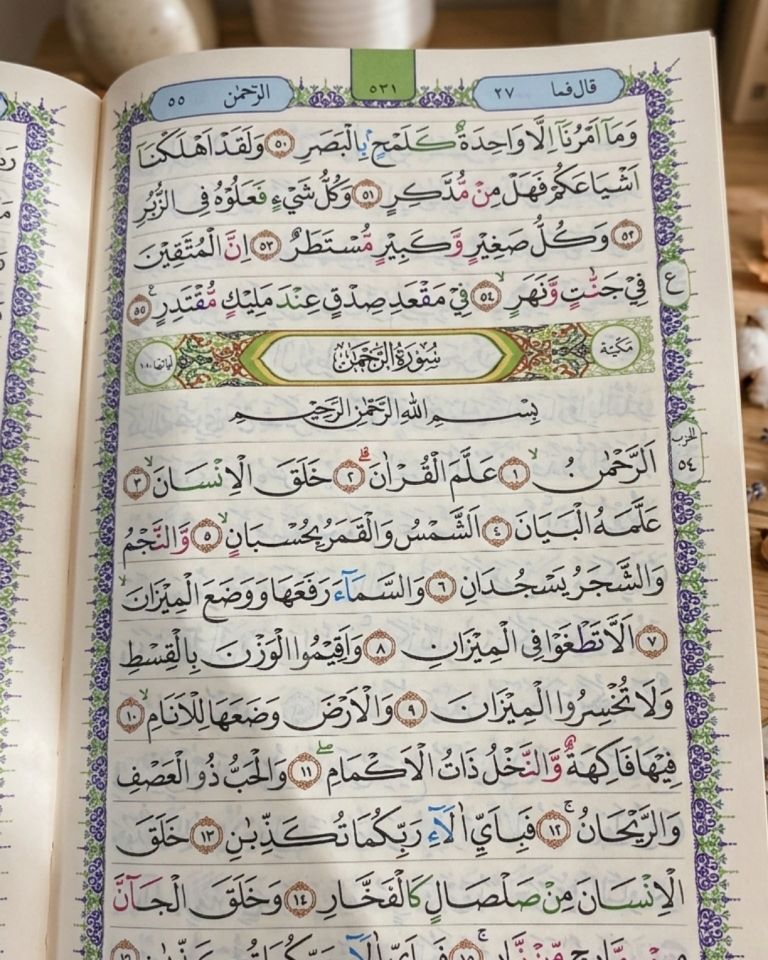 الرَّحْمٰن ٥٥
٥٣١
قَالَ فَمَا ٢٧
وَمَآ اَمْرُنَآ اِلَّا وَاحِدَةٌ كَلَمْحٍ ۢ بِالْبَصَرِ ٥٠ وَلَقَدْ اَهْلَكْنَآ
اَشْيَاعَكُمْ فَهَلْ مِنْ مُّدَّكِرٍ ٥١ وَكُلُّ شَيْءٍ فَعَلُوْهُ فِى الزُّبُرِ
٥٢ وَكُلُّ صَغِيْرٍ وَّكَبِيْرٍ مُّسْتَطَرٌ ٥٣ اِنَّ الْمُتَّقِيْنَ
فِيْ جَنّٰتٍ وَّنَهَرٍ ٥٤ فِيْ مَقْعَدِ صِدْقٍ عِنْدَ مَلِيْكٍ مُّقْتَدِرٍ ٥٥
ع
مَكِّيَّة
سُوْرَةُ الرَّحْمٰنِ
بِسْمِ اللّٰهِ الرَّحْمٰنِ الرَّحِيْمِ
الحزب
٥٤
اَلرَّحْمٰنُ ١ عَلَّمَ الْقُرْاٰنَ ٢ خَلَقَ الْاِنْسَانَ ٣
عَلَّمَهُ الْبَيَانَ ٤ اَلشَّمْسُ وَالْقَمَرُ بِحُسْبَانٍ ٥ وَّالنَّجْمُ
وَالشَّجَرُ يَسْجُدَانِ ٦ وَالسَّمَآءَ رَفَعَهَا وَوَضَعَ الْمِيْزَانَ
٧ اَلَّا تَطْغَوْا فِى الْمِيْزَانِ ٨ وَاَقِيْمُوا الْوَزْنَ بِالْقِسْطِ
وَلَا تُخْسِرُوا الْمِيْزَانَ ٩ وَالْاَرْضَ وَضَعَهَا لِلْاَنَامِ ١٠
فِيْهَا فَاكِهَةٌ وَّالنَّخْلُ ذَاتُ الْاَكْمَامِ ١١ وَالْحَبُّ ذُو الْعَصْفِ
وَالرَّيْحَانُ ١٢ فَبِاَيِّ اٰلَآءِ رَبِّكُمَا تُكَذِّبٰنِ ١٣ خَلَقَ
الْاِنْسَانَ مِنْ صَلْصَالٍ كَالْفَخَّارِ ١٤ وَخَلَقَ الْجَآنَّ